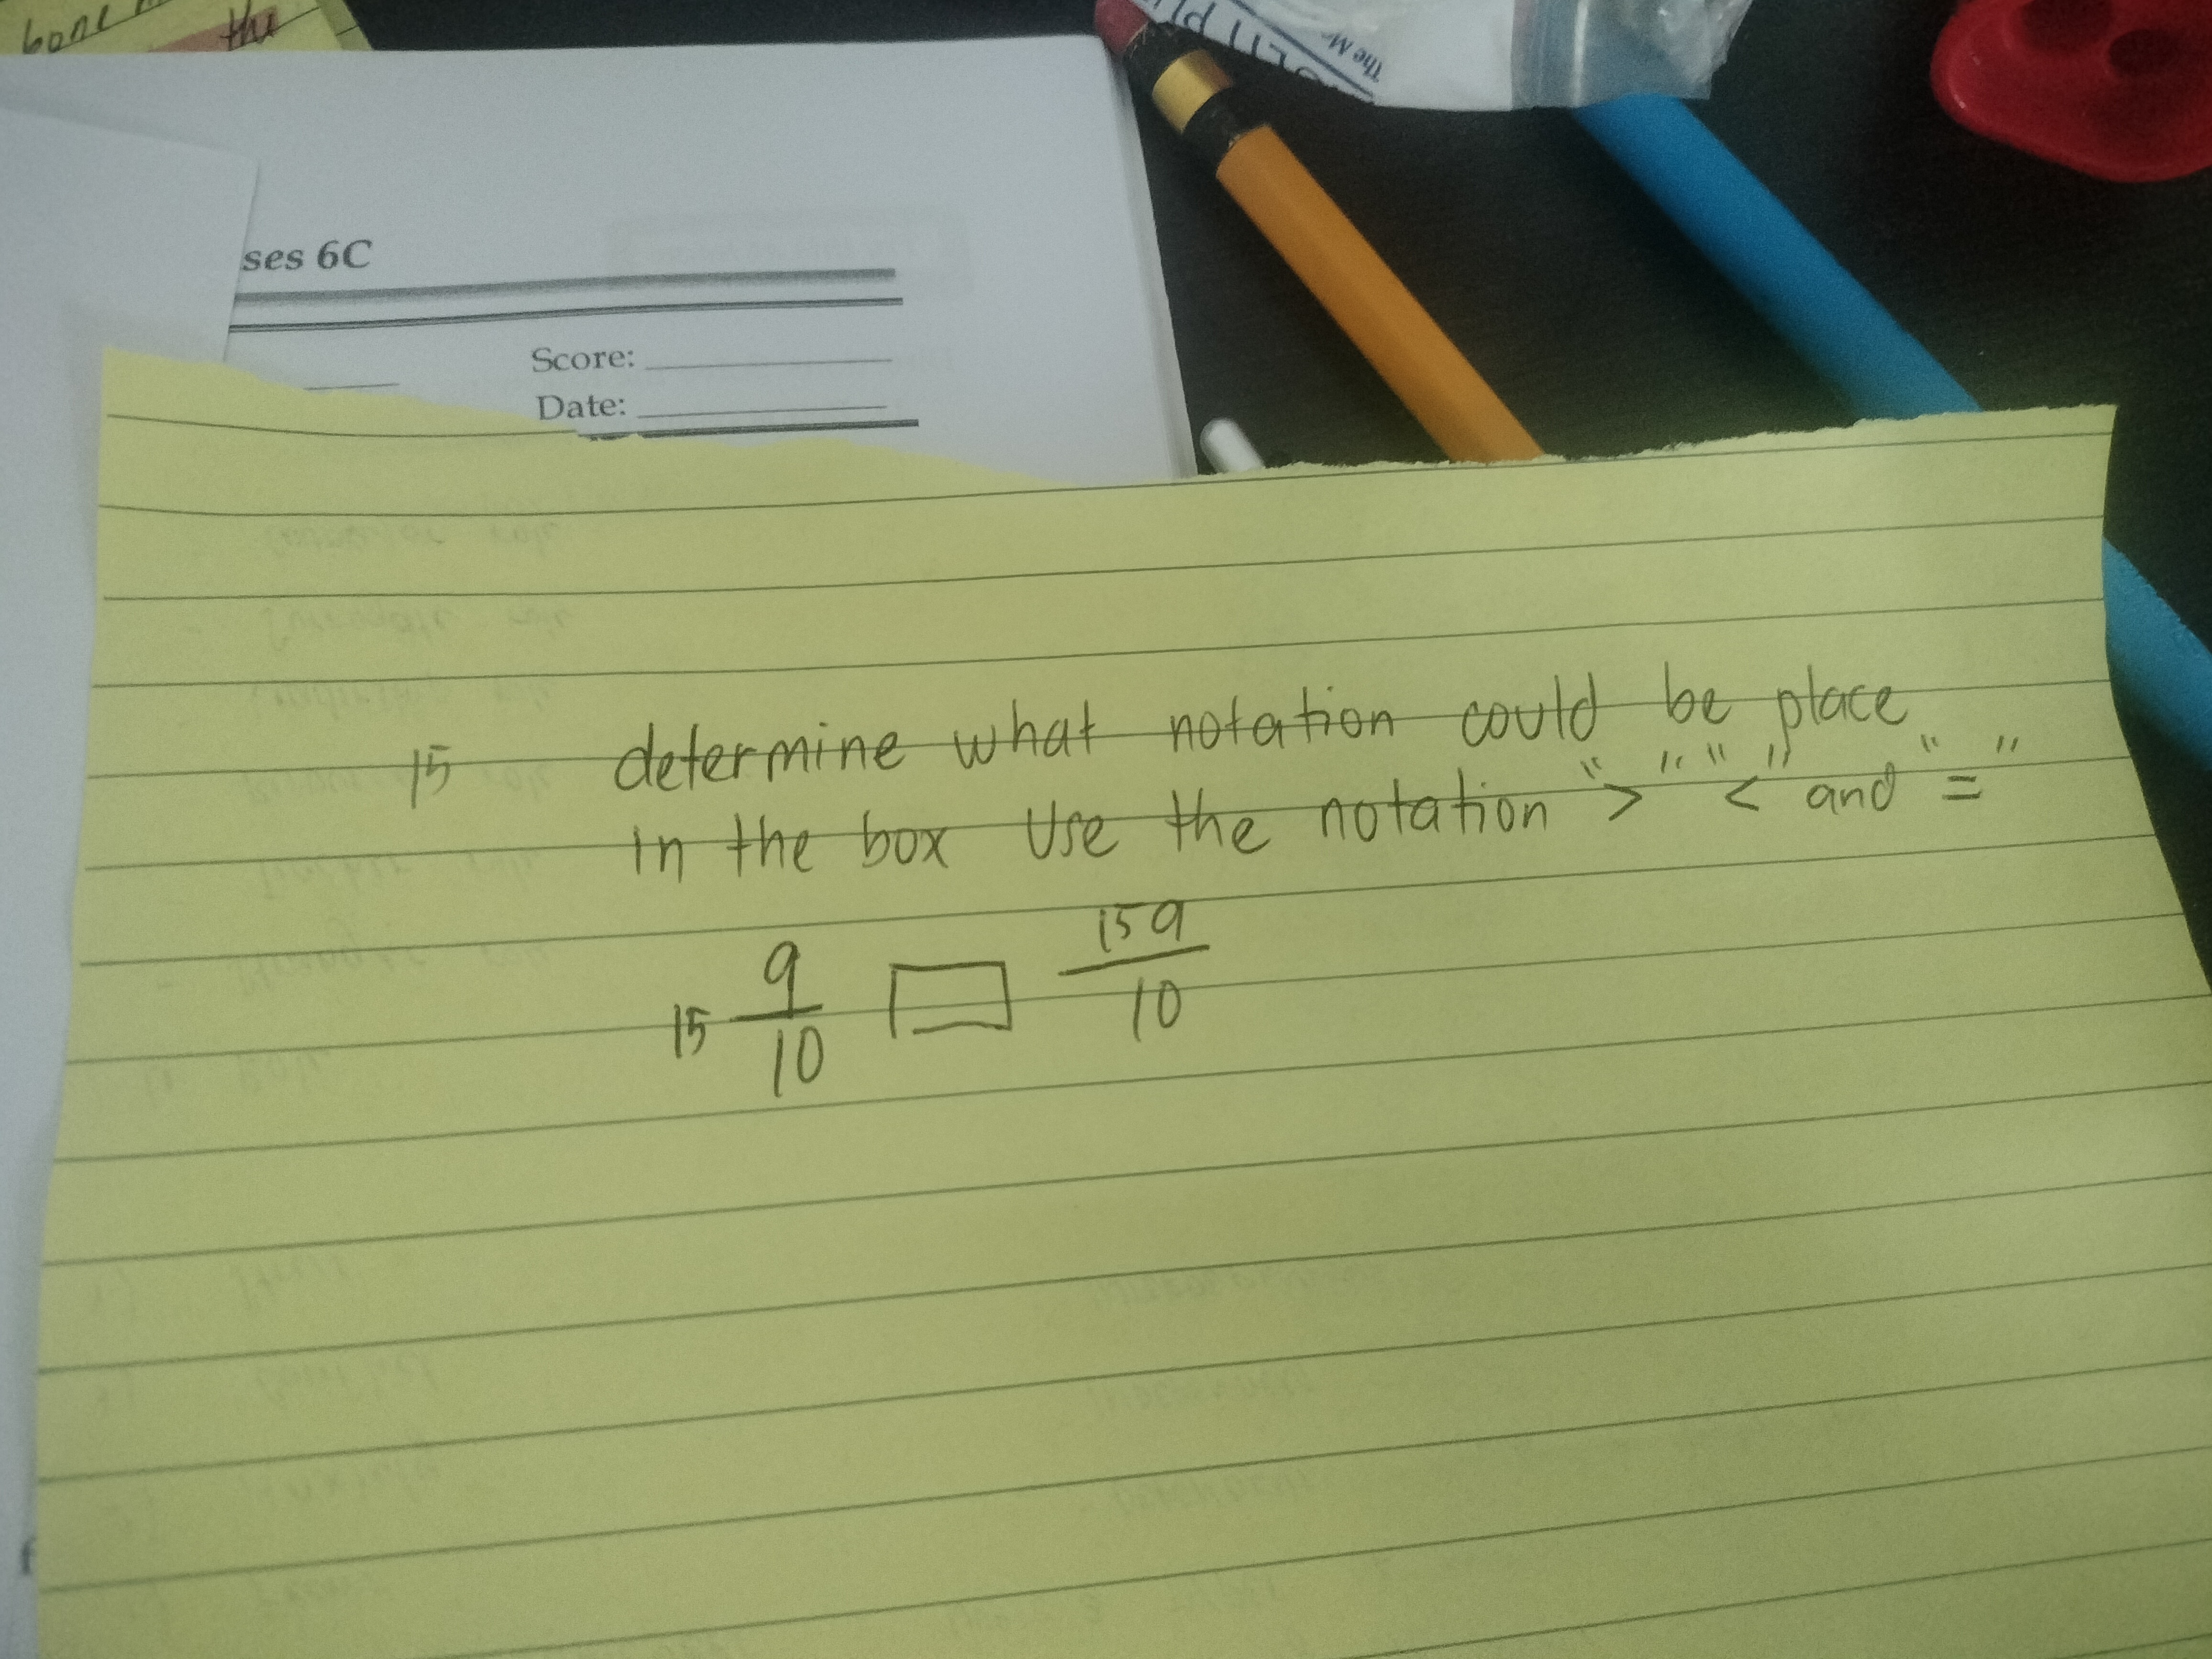 bone
the
The M
ses 6C
Score:
Date:
15 determine what notation could be place
in the box Use the notation “>” “<” and “=”
15 9/10 □ 159/10